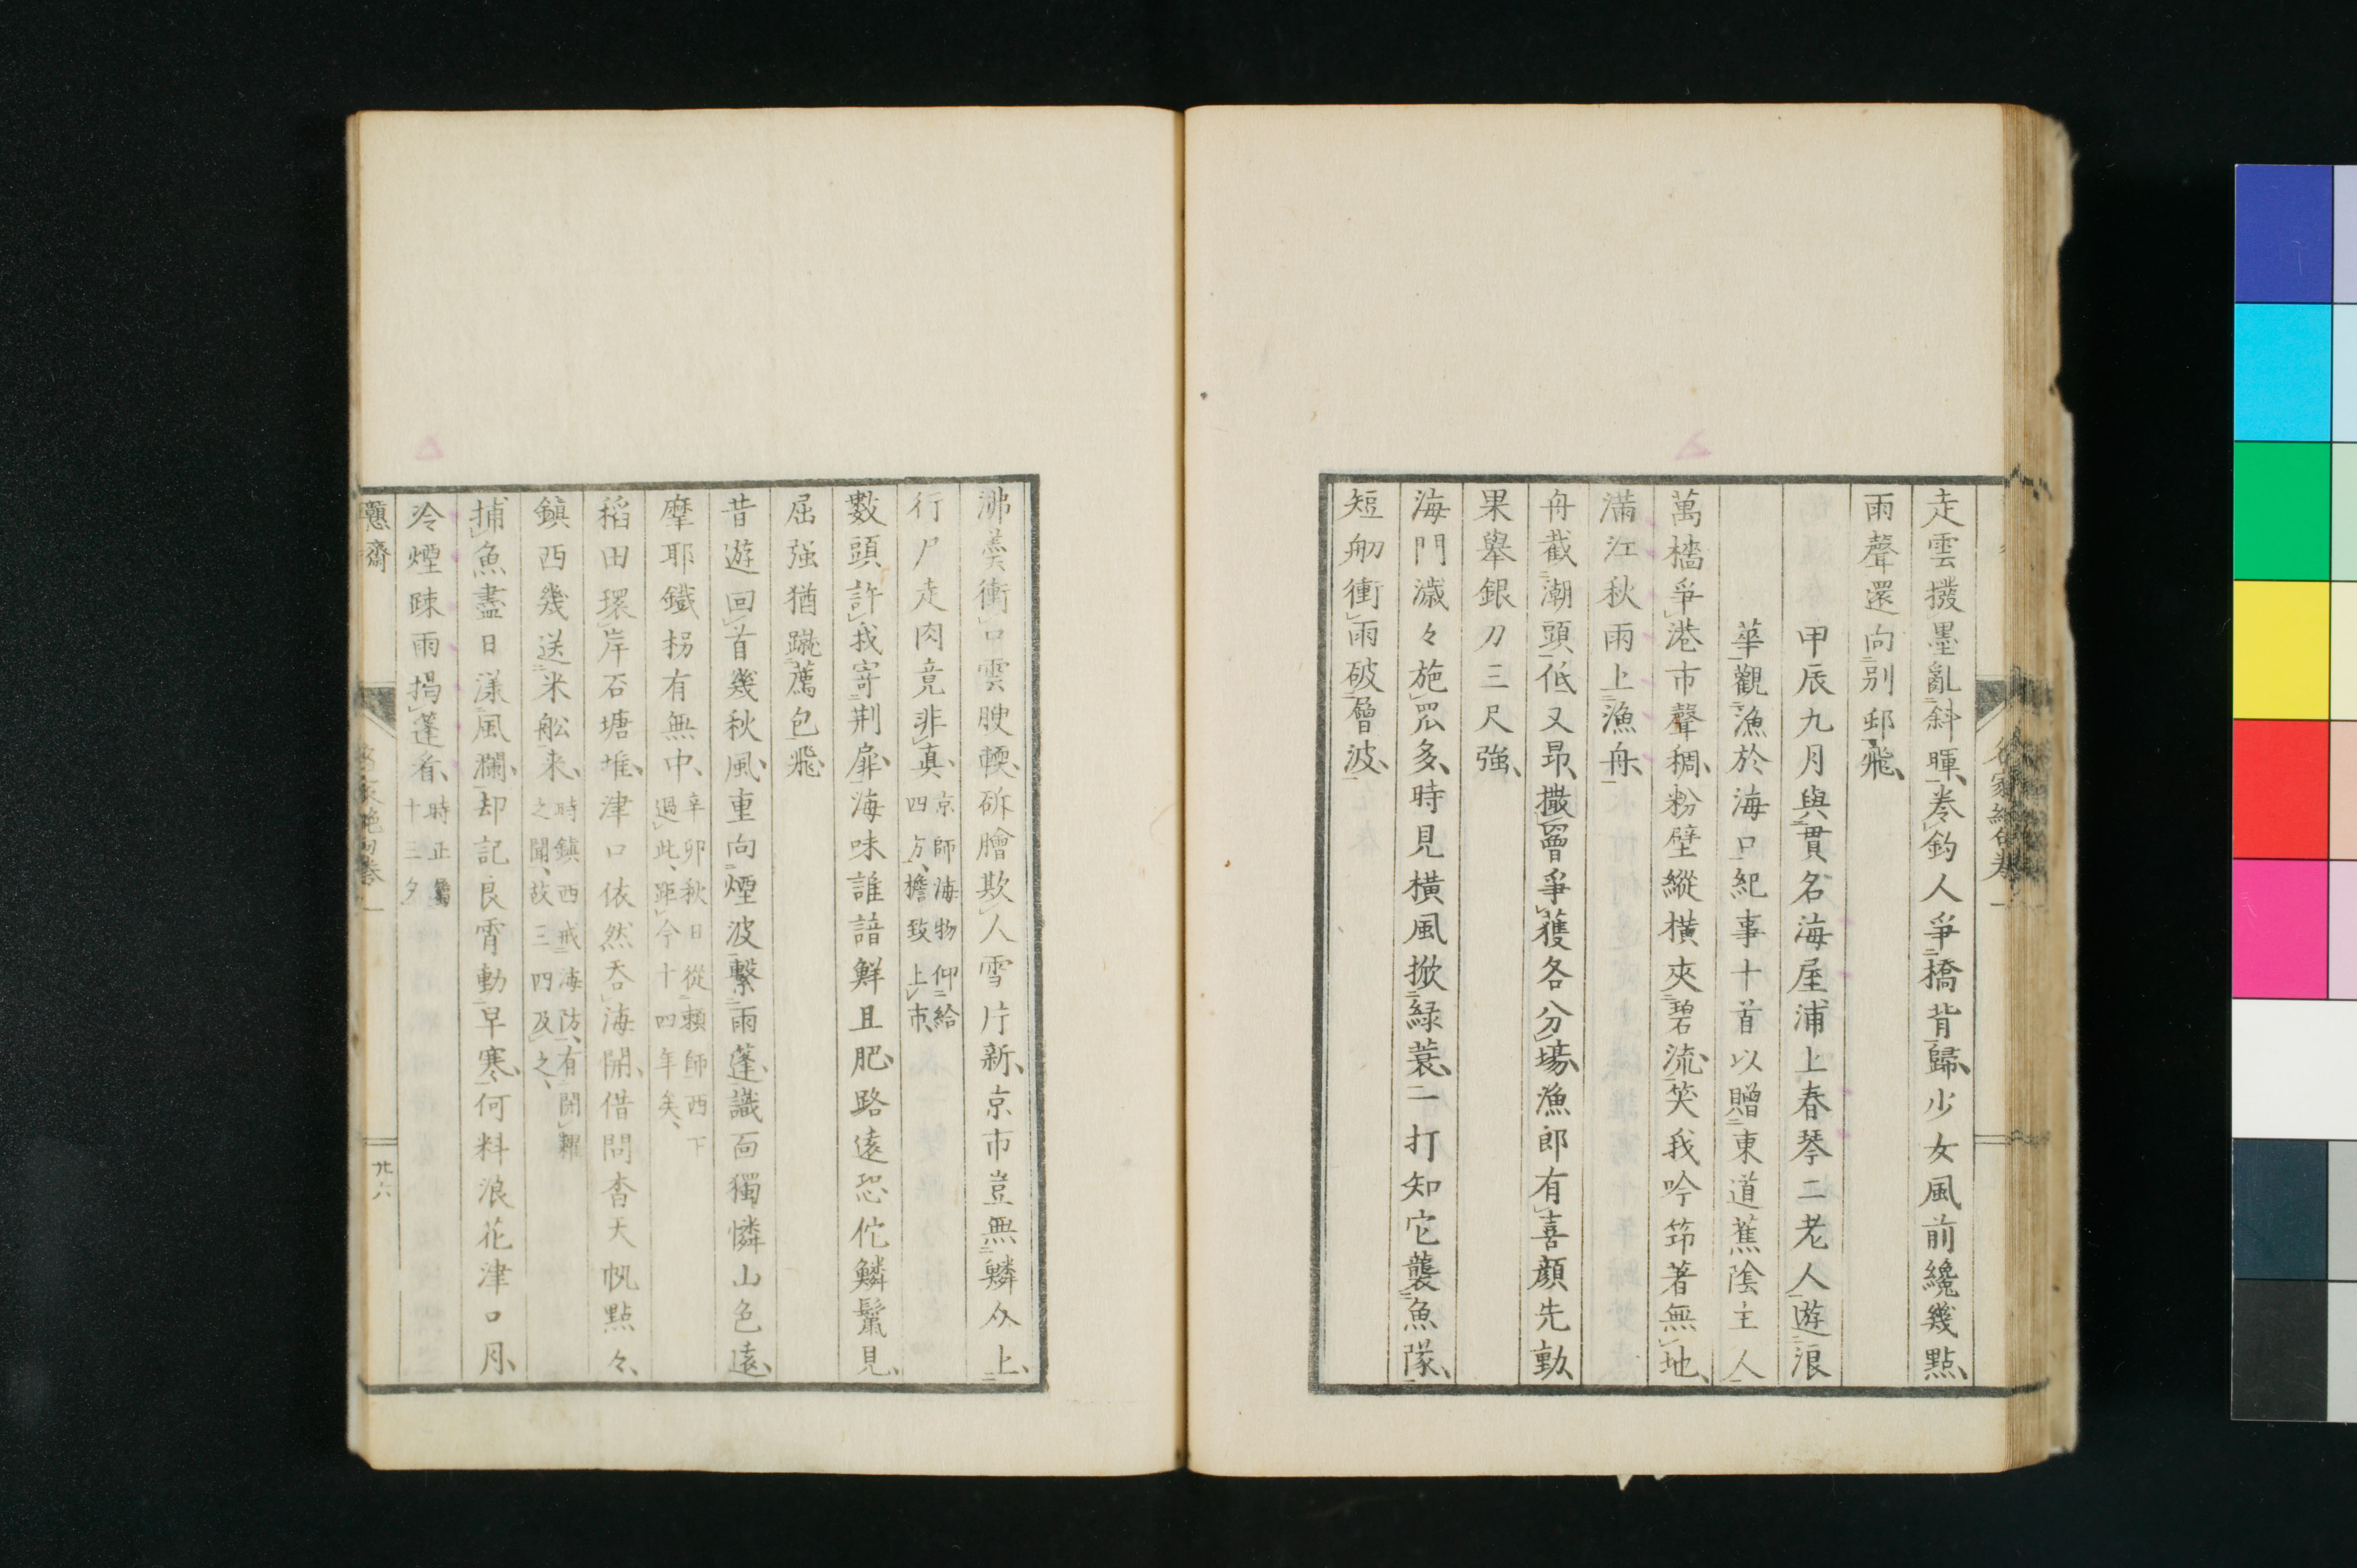 走雲撥墨亂斜暉卷釣人爭橋背歸少女風前纔幾點
雨聲還向別邨飛
甲辰九月與貫名海屋浦上春琴二老人遊浪
華觀漁於海口紀事十首以贈東道蕉陰主人
萬檣爭港市聲稠粉壁縱橫夾碧流笑我吟笻著無地
滿江秋雨上漁舟
舟截潮頭低又昂撒罾爭獲各分場漁郎有喜顏先動
果舉銀刀三尺強
海門濊々施罛多時見橫風掀綠蓑一打知它襲魚隊
短舠衝雨破層波
沸羹衝口雲腴輭斫膾欺人雪片新京市豈無鱗介上
行尸走肉竟非真
京師海物仰給
四方擔致上市
數頭許我寄荊扉海味誰諳鮮且肥路遠恐佗鱗鬣見
屈强猶蹴薦包飛
昔遊回首幾秋風重向煙波繫雨蓬識面獨憐山色遠
摩耶鐵拐有無中
辛卯秋日從賴師西下
過此距今十四年矣
稻田環岸石塘堆津口依然吞海開借問杳天帆點々
鎮西幾送米舩来
時鎮西戒海防有閉糴
之聞故三四及之
捕魚盡日漾風瀾却記良宵動早寒何料浪花津口月
冷煙疎雨揭蓬看
時正
十三夕
名家絕句卷一
廿六